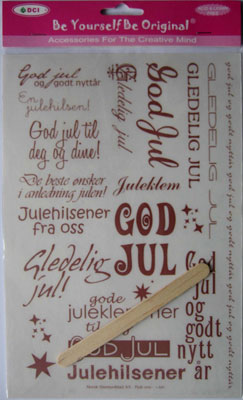 DCI
Be Yourself Be Original
Accessories For The Creative Mind
God jul
og godt nyttår
En
julehilsen!
God jul til
deg og dine!
De beste ønsker
i anledning julen!
Julehilsener
fra oss
Gledelig
jul!
gode
juleklemmer
til
GOD JUL
Julehilsener
Gledelig
jul!
God
Jul
Juleklem
GOD
JUL
GLEDELIG
JUL
GLEDELIG JUL
God
jul
og
godt
nytt
år